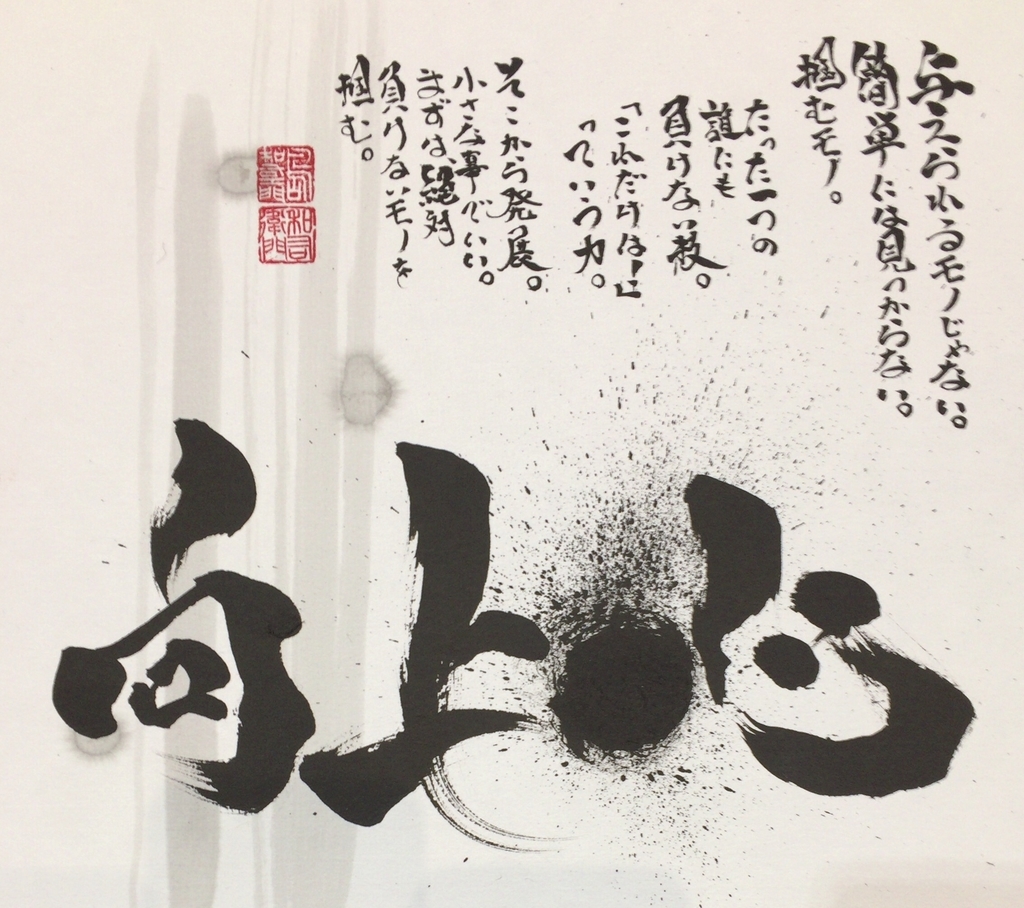 与えられるモノじゃない。
簡単には見つからない。
掴むモノ。
たった一つの
誰にも
負けない教。
「これだけは!」に
っていう力。
そこから発展。
小さな事でいい。
まずは、絶対
負けないモノを
掴む。
向上心